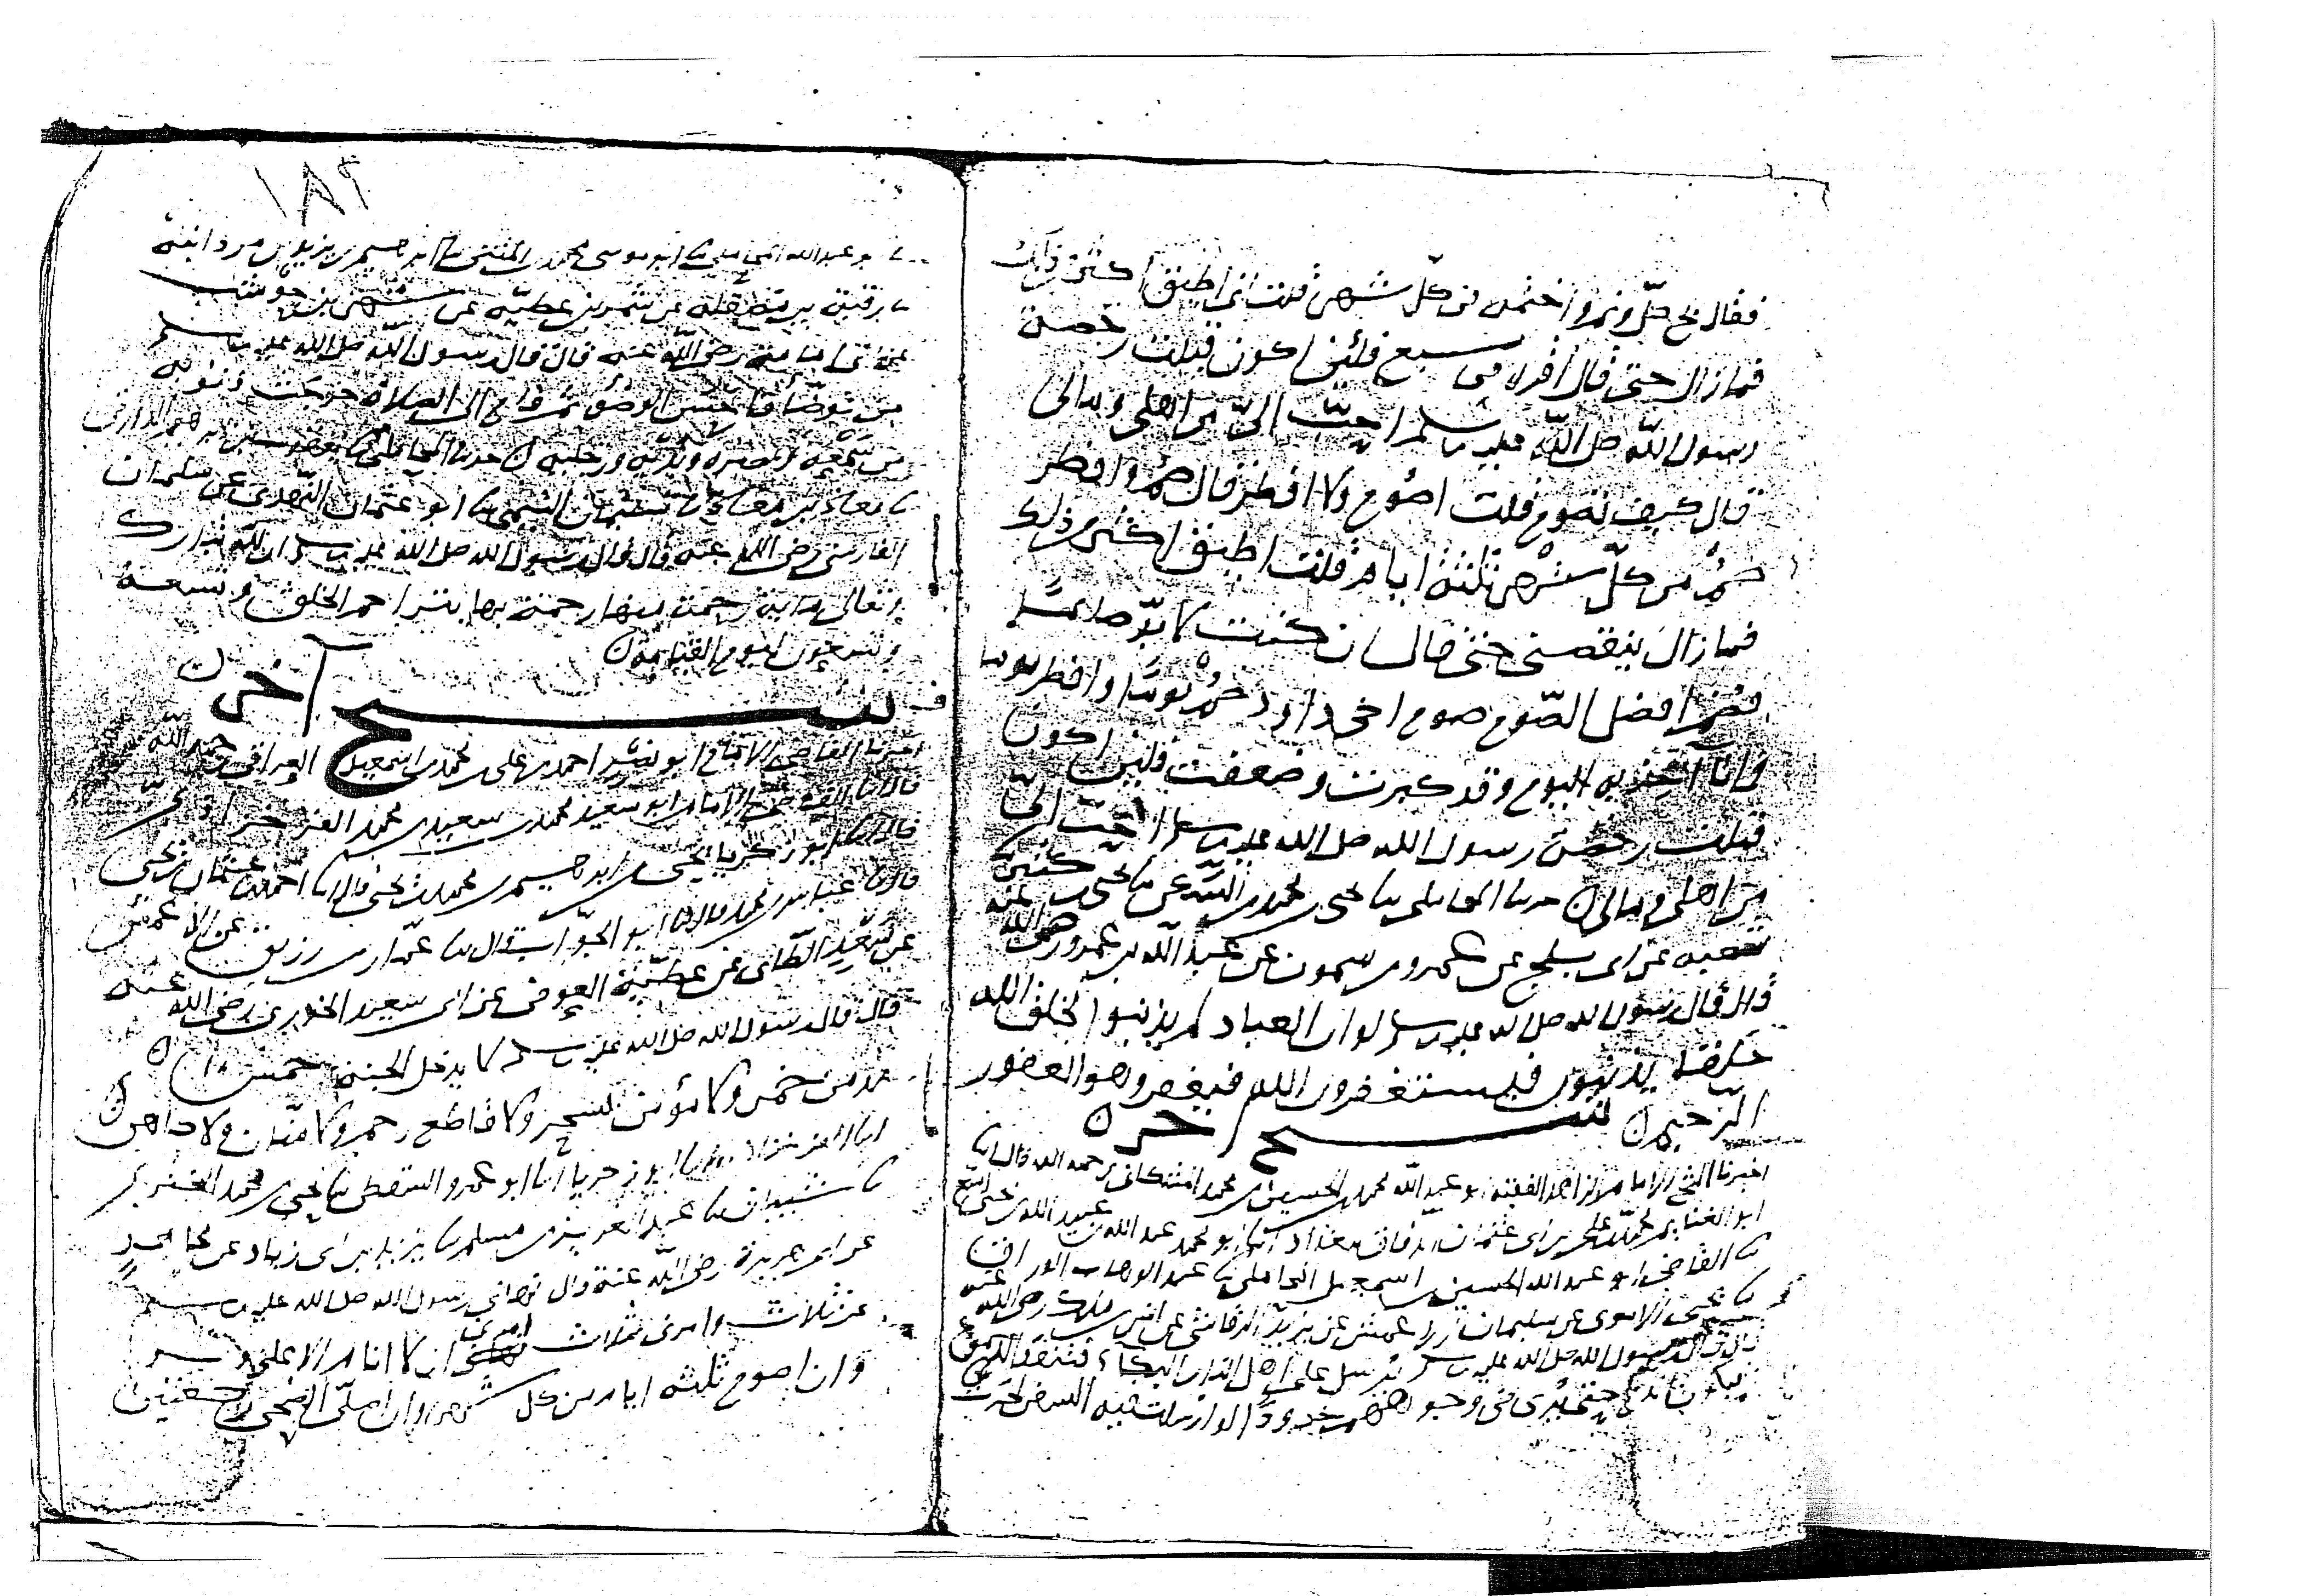 فقال صل ونم واختمه في كل شهر قلت اني اطيق اكثر من ذلك
فما زال حتى قال اقره في سبع فلئن اكون قبلت رخصة
رسول الله صلى الله عليه وسلم احب الي من اهلي ومالي
قال كيف تصوم قلت اصوم ولا افطر قال صم وافطر
صم من كل شهر ثلثة ايام قلت اطيق اكثر من ذلك
فما زال ينقصني حتى قال ان كنت لا بد صائما
فصم افضل الصوم صوم اخي داود صم يوما وافطر يوما
وانا اليوم وقد كبرت وضعفت فلئن اكون
قبلت رخصة رسول الله صلى الله عليه وسلم احب الي
من اهلي ومالي حدثنا المحاملي ثنا يحيى بن محمد بن السكن ثنا يحيى بن كثير ثنا
شعبة عن ابي بلج عن عمرو بن ميمون عن عبد الله بن عمرو رضي الله عنه
قال قال رسول الله صلى الله عليه وسلم لو ان العباد لم يذنبوا لخلق الله
خلقا يذنبون فيستغفرون الله فيغفر وهو الغفور
الرحيم شيخ اخر
اخبرنا الشيخ الامام الزاهد الفقيه ابو عبد الله محمد بن الحسين بن محمد رحمه الله قال انا
ابو الغنائم محمد بن علي بن ابي عثمان الدقاق ببغداد انا ابو محمد عبد الله بن عبيد الله بن يحيى البيع
ثنا القاضي ابو عبد الله الحسين بن اسمعيل المحاملي ثنا عبد الوهاب الوراق
ثنا يحيى الاموي عن سليمان الاعمش عن يزيد الرقاشي عن انس بن مالك رضي الله عنه
قال قال رسول الله صلى الله عليه وسلم يرسل على اهل النار البكاء فتنفد الدموع
حتى يرى في وجوههم خدودا لو ارسلت فيه السفن لجرت
١٨٢
ابو عبد الله المحاملي ثنا ابو موسى محمد بن المثنى ثنا ابراهيم بن يزيد بن مردانبه
ثنا رقبة بن مصقلة عن شمر بن عطية عن شهر بن حوشب
عن ابي امامة رضي الله عنه قال قال رسول الله صلى الله عليه وسلم
من توضأ فاحسن الوضوء ثم قام الى الصلاة خرجت ذنوبه
من سمعه وبصره ويديه ورجليه حدثنا المحاملي ثنا يعقوب بن ابرهيم الدورقي
ثنا معاذ بن معاذ ثنا سليمان التيمي ثنا ابو عثمان النهدي عن سلمان
الفارسي رضي الله عنه قال قال رسول الله صلى الله عليه وسلم ان لله تبارك
وتعالى مائة رحمة منها رحمة بها يتراحم الخلق وتسعة
وتسعون ليوم القيامة
شيخ اخر
اخبرنا القاضي الامام ابو بشر احمد بن علي بن محمد بن اسمعيل العراقي رحمه الله
قال انا الشيخ الامام ابو سعيد محمد بن سعيد بن محمد
قال انا ابو زكريا يحيى بن ابرهيم بن محمد بن يحيى قال انا احمد بن عثمان بن يحيى
قال ثنا عباس بن محمد قال ثنا ابو الجواب قال ثنا عمار بن رزيق عن الاعمش
عن سعد الطائي عن عطية العوفي عن ابي سعيد الخدري رضي الله عنه
قال قال رسول الله صلى الله عليه وسلم لا يدخل الجنة خمس
مدمن خمر ولا مؤمن بسحر ولا قاطع رحم ولا منان ولا كاهن
ابو زكريا انا ابو عمرو السقطي ثنا يحيى بن محمد
ثنا شيبان ثنا عبد العزيز بن مسلم ثنا يزيد بن ابي زياد عن مجاهد
عن ابي هريرة رضي الله عنه قال نهاني رسول الله صلى الله عليه وسلم
عن ثلاث وامرني بثلاث امرني ان لا انام الا على وتر
وان اصوم ثلثة ايام من كل شهر وان اصلي الضحى ركعتين